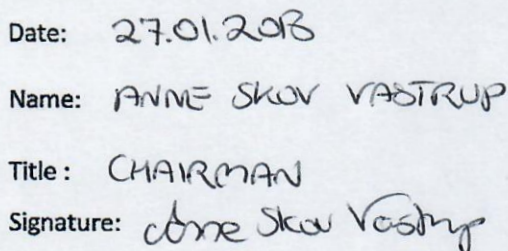 Date: 27.01.2013
Name: ANNE SKOV VASTRUP
Title : CHAIRMAN
Signature: Anne Skov Vastrup